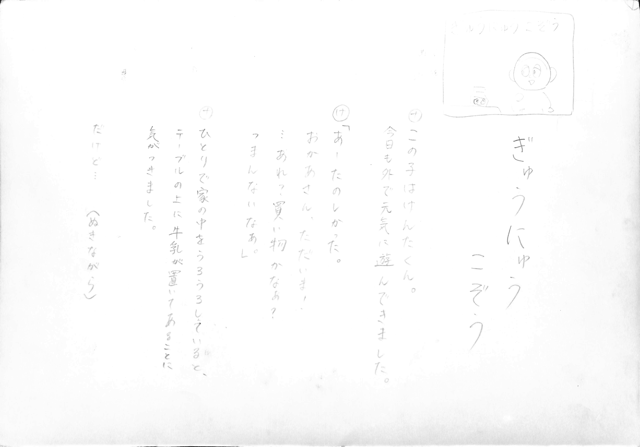 ぎゅうにゅう
こぞう
この子はけんたくん。
今日も外で元気に遊んできました。
「あーたのしかった。
おかあさん、ただいま。
…あれ?買い物かなぁ?
つまんないなぁ。」
ひとりで家の中をうろうろしていると、
テーブルの上に牛乳が置いてあることに
気がつきました。
だけど…(ぬきながら)